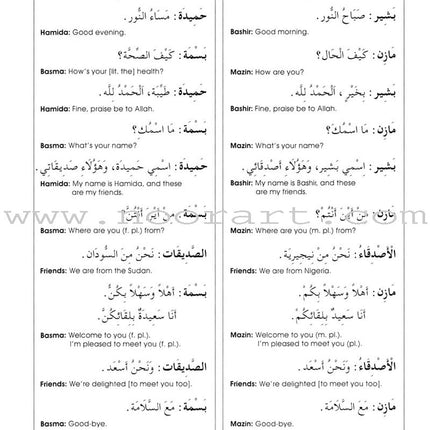 بَشِير : صَبَاحُ النُّور.
Bashir: Good morning.
مَازِن : كَيْفَ الْحَال؟
Mazin: How are you?
بَشِير : بِخَيْرٍ ، اَلْحَمْدُ لِلَّه.
Bashir: Fine, praise be to Allah.
مَازِن : مَا اسْمُكَ؟
Mazin: What's your name?
بَشِير : اِسْمِي بَشِير، وَهَؤُلَاءِ أَصْدِقَائِي.
Bashir: My name is Bashir, and these
are my friends.
مَازِن : مِنْ أَيْنَ أَنْتُمْ؟
Mazin: Where are you (m. pl.) from?
الْأَصْدِقَاء : نَحْنُ مِنْ نِيجِيرِيَة.
Friends: We are from Nigeria.
مَازِن : أَهْلاً وَسَهْلاً بِكُمْ.
أَنَا سَعِيدٌ بِلِقَائِكُمْ.
Mazin: Welcome to you (m. pl.)
I'm pleased to meet you (m. pl.).
الْأَصْدِقَاء : وَنَحْنُ أَسْعَد.
Friends: We're delighted [to meet you too].
مَازِن : مَعَ السَّلَامَة.
Mazin: Good-bye.
حَمِيدَة : مَسَاءُ النُّور.
Hamida: Good evening.
بَسْمَة : كَيْفَ الصِّحَّة؟
Basma: How's your [lit. the] health?
حَمِيدَة : طَيِّبَة، اَلْحَمْدُ لِلَّه.
Hamida: Fine, praise be to Allah.
بَسْمَة : مَا اسْمُكِ؟
Basma: What's your name?
حَمِيدَة : اِسْمِي حَمِيدَة، وَهَؤُلَاءِ صَدِيقَاتِي.
Hamida: My name is Hamida, and these
are my friends.
بَسْمَة : مِنْ أَيْنَ أَنْتُنَّ؟
Basma: Where are you (f. pl.) from?
الصَّدِيقَات : نَحْنُ مِنَ السُّودَان.
Friends: We are from the Sudan.
بَسْمَة : أَهْلاً وَسَهْلاً بِكُنَّ.
أَنَا سَعِيدَةٌ بِلِقَائِكُنَّ.
Basma: Welcome to you (f. pl.)
I'm pleased to meet you (f. pl.).
الصَّدِيقَات : وَنَحْنُ أَسْعَد.
Friends: We're delighted [to meet you too].
بَسْمَة : مَعَ السَّلَامَة.
Basma: Good-bye.
www.noorart.com